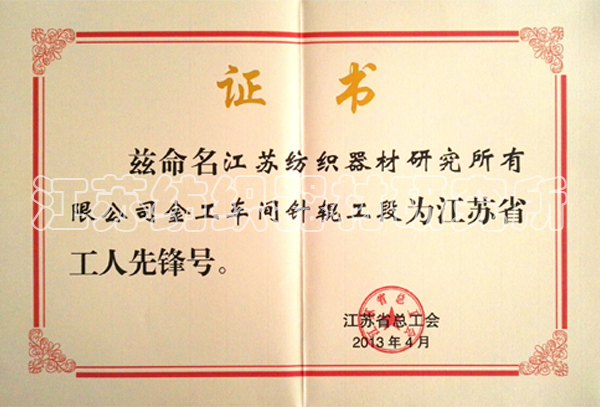 证书
兹命名江苏纺织器材研究所有
限公司金工车间针辊工段为江苏省
工人先锋号。
江苏省总工会
2013年4月
江苏纺织器材研究所